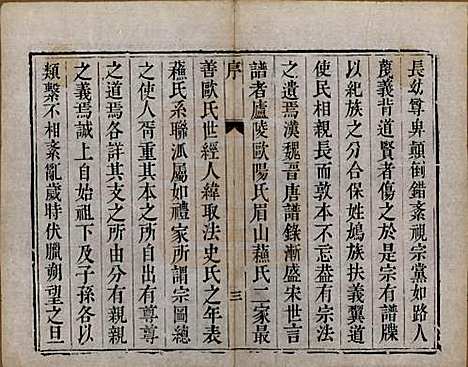 長幼尊卑顛倒錯紊視宗黨如路人
蔑義背道賢者傷之於是宗有譜牒
以紀族之分合保姓鳩族扶義翼道
使民相親長而敦本不忘盡有宗法
之遺焉漢魏晉唐譜錄漸盛宋世言
譜者廬陵歐陽氏眉山蘇氏二家最
序
三
善歐氏世經人緯取法史氏之年表
蘇氏系聯派屬如禮家所謂宗圖總
之使人胥重其本之所自出有尊尊
之道焉各詳其支之所由分有親親
之義焉誠上自始祖下及子孫各以
類繫不相紊亂歲時伏臘朔望之旦